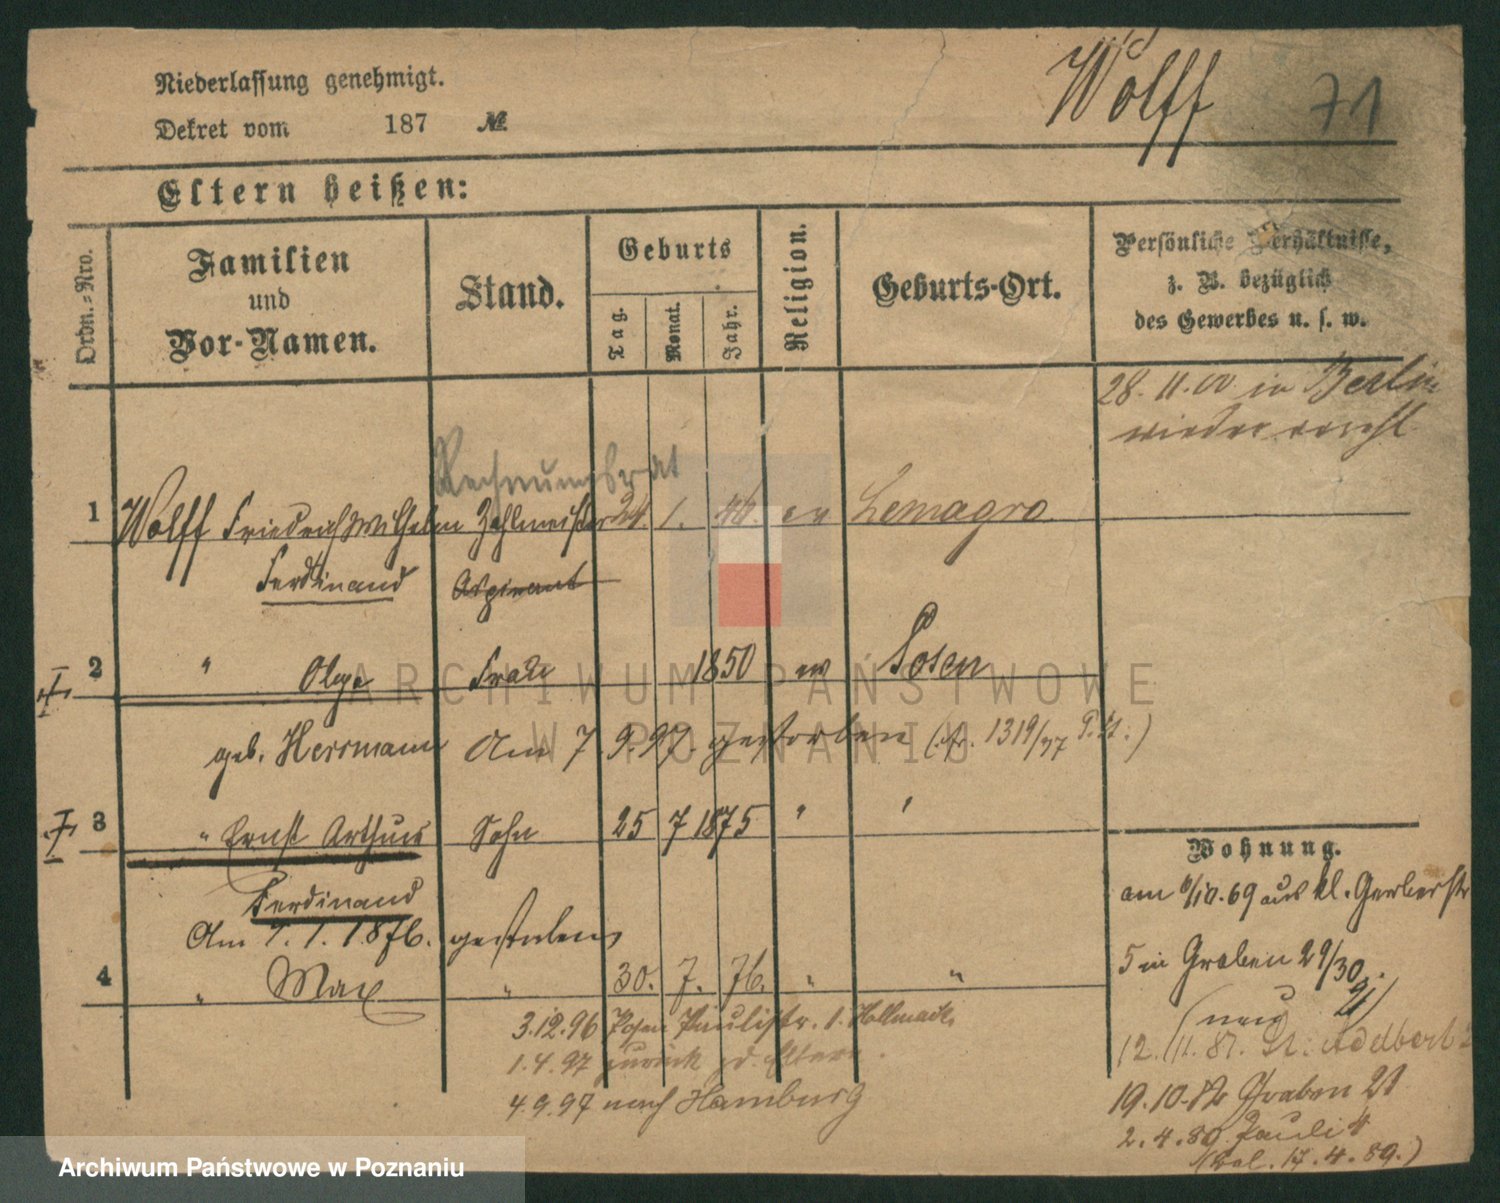 Niederlassung genehmigt.
Wolff 71
Dekret vom 187 №.
Eltern heißen:
Ordn.-Nro.
Familien
und
Vor-Namen.
Stand.
Geburts
Tag.
Monat.
Jahr.
Religion.
Geburts-Ort.
Persönliche Verhältnisse,
z. B. bezüglich
des Gewerbes u. s. w.
28. 11. 00 in Berlin
wieder
Rechnungsrat
1 Wolff Friedrich Wilhelm Zahlmeister 24. 1. 40. ev Lemagro
Ferdinand Aspirant
2 " Olga Frau 1850 ev Posen
geb. Herrmann Am 7 9. 97. gestorben 1319/97
3 " Ernst Arthur Sohn 25 7 1875 " "
Ferdinand
Am 1. 1876. gestorben
4 " Max " 30. 7. 76. " "
3.12.96 Posen Paulistr.
1.4.97 zurück Eltern.
4.9.97 nach Hamburg
Wohnung.
am /10.69 aus kl. Gerberstr
5 in Graben 29/30.
(neu 21)
12. 11. 81. St. Adelbert
19.10. Graben 21
2.4.80. Pauli
17.4.89.)
ARCHIWUM PAŃSTWOWE
W POZNANIU
Archiwum Państwowe w Poznaniu